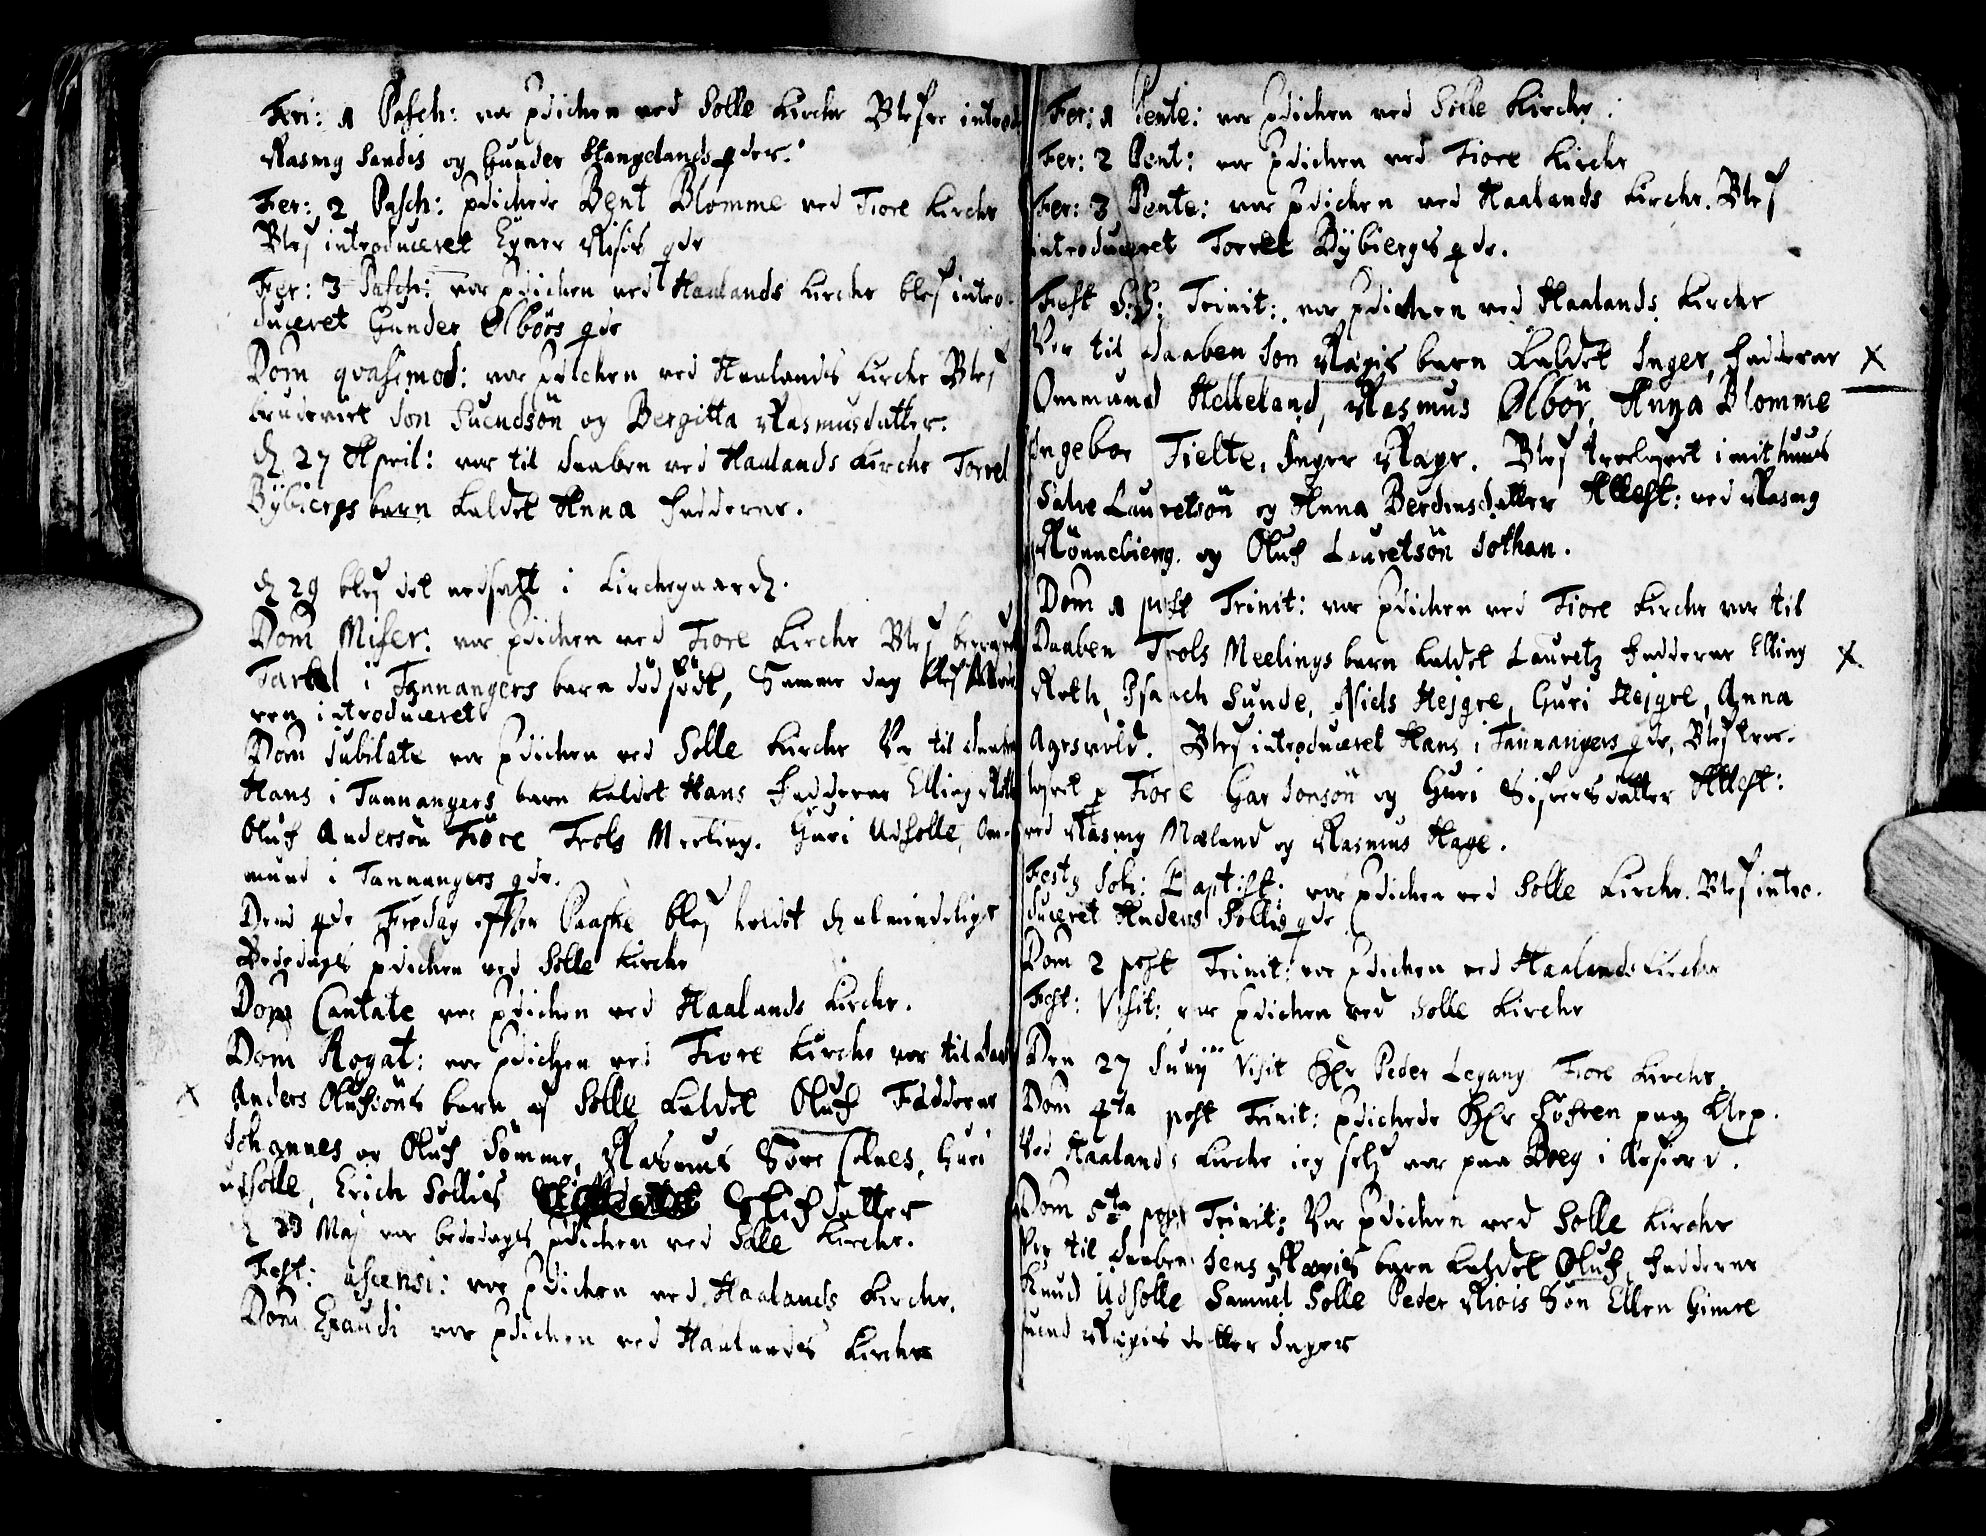 Fer: 1 Pasch: var pdichen ved Solle Kirche Blefve introd
Rasmg Sandis og Gunder Stangelands qder.
Fer: 2 Pasch: pdichede Bent Blomme ved Tiore Kirche
Blef introduceret Egner Risis qde
Fer: 3 Pasch: var pdichen ved Haalands Kirche blef intro-
duceret Gunder Ølbörs qde
Dom qvasimod: var pdichen ved Haalands Kirche Blef
bruderiet Jon Suendsön og Bergitta Rasmusdatter.
d 27 April: var til daaben ved Haalands Kirche Torrel
Bÿbiergs barn kaldet Anna fadderne.
d 29 blef det nedsatt i Kirchegaard.
Dom Miser: var pdichen ved Tiore Kirche Blef
i Tannangers barn dödfödt, Samme dag blef
ren introduceret
Dom Jubilate var pdichen ved Solle Kirche Var til daaben
Hans i Tannangers barn kaldet Hans Fadderne Elling
Oluf Andersön Tiöre Trols Meeling. Guri Udsolle, Om-
mund i Tannangers qde.
Dend 4de Fredag efter Paaske blef holdt d almindelige
Bededags pdichen ved Solle Kirche
Dom Cantate var pdichen ved Haalands Kirche.
Dom Rogat: var pdichen ved Tiore Kirche var til daab
x Anders Olufsöns barn af Solle kaldet Oluf Fadderne
Johannes og Oluf Sömme, Rasmus Söre Guri
udsolle, Erich Sollies Olufdatter
d 23 Maj var bededages pdichen ved Solle Kirche.
Fest: ascensi: var pdichen ved Haalands Kirche.
Dom Exaudi var pdichen ved Haalands Kirche
Fer: 1 Pente: var pdichen ved Solle Kirche:
Fer: 2 Pent: var pdichen ved Tiore Kirche
Fer: 3 Pente: var pdichen ved Haalands Kirche. Blef
introduceret Torrel Bÿbiergs qde.
Fest S:S: Trinit: var pdichen ved Haalands Kirche
Var til daaben Jon Ragis barn kaldet Inger, fadderne x
Ommund Helleland, Rasmus Ølbör, Anna Blomme
Ingebor Tielte, Inger Rage. Blef trolofvet i mit huus
Salve Lauretsön og Anna Berdinsdatter Attest: ved Rasmg
Rönnebierg og Oluf Lauretsön Jothan.
Dom 1 post Trinit: var pdichen ved Tiore Kirche var til
Daaben Trols Meelings barn kaldet Lauretz fadderne Elling x
Roth, Isaach Sunde, Niels Hejgre, Guri Hejgre, Anna
Agesvold. Blef introduceret Hans i Tannangers qde, Blef troe-
lofvet p Tiore Gar Jonsön og Guri Sifversdatter Attest:
ved Rasmg Mæland og Rasmus Hage.
Festg Joh: Baptist: var pdichen ved Solle Kirche. Blef intro-
duceret Anders Sollis qde
Dom 2 post Trinit: var pdichen ved Haalands Kirche
Fest: Visit: var pdichen ved Solle Kirche
Den 27 Junÿ Visit Hr Peder Legang Tiore Kirche.
Dom 4ta post Trinit: pdichede Hr Söfren paa Klep.
Ved Haalands Kirche ieg self var paa Boeg i
Dom 5ta post Trinit: Var pdichen ved Solle Kirche
Var til daaben Jens barn kaldet Oluf, fadderne
Knud Udsolle Samuel Solle Peder Son Ellen Gimre
datter Inger